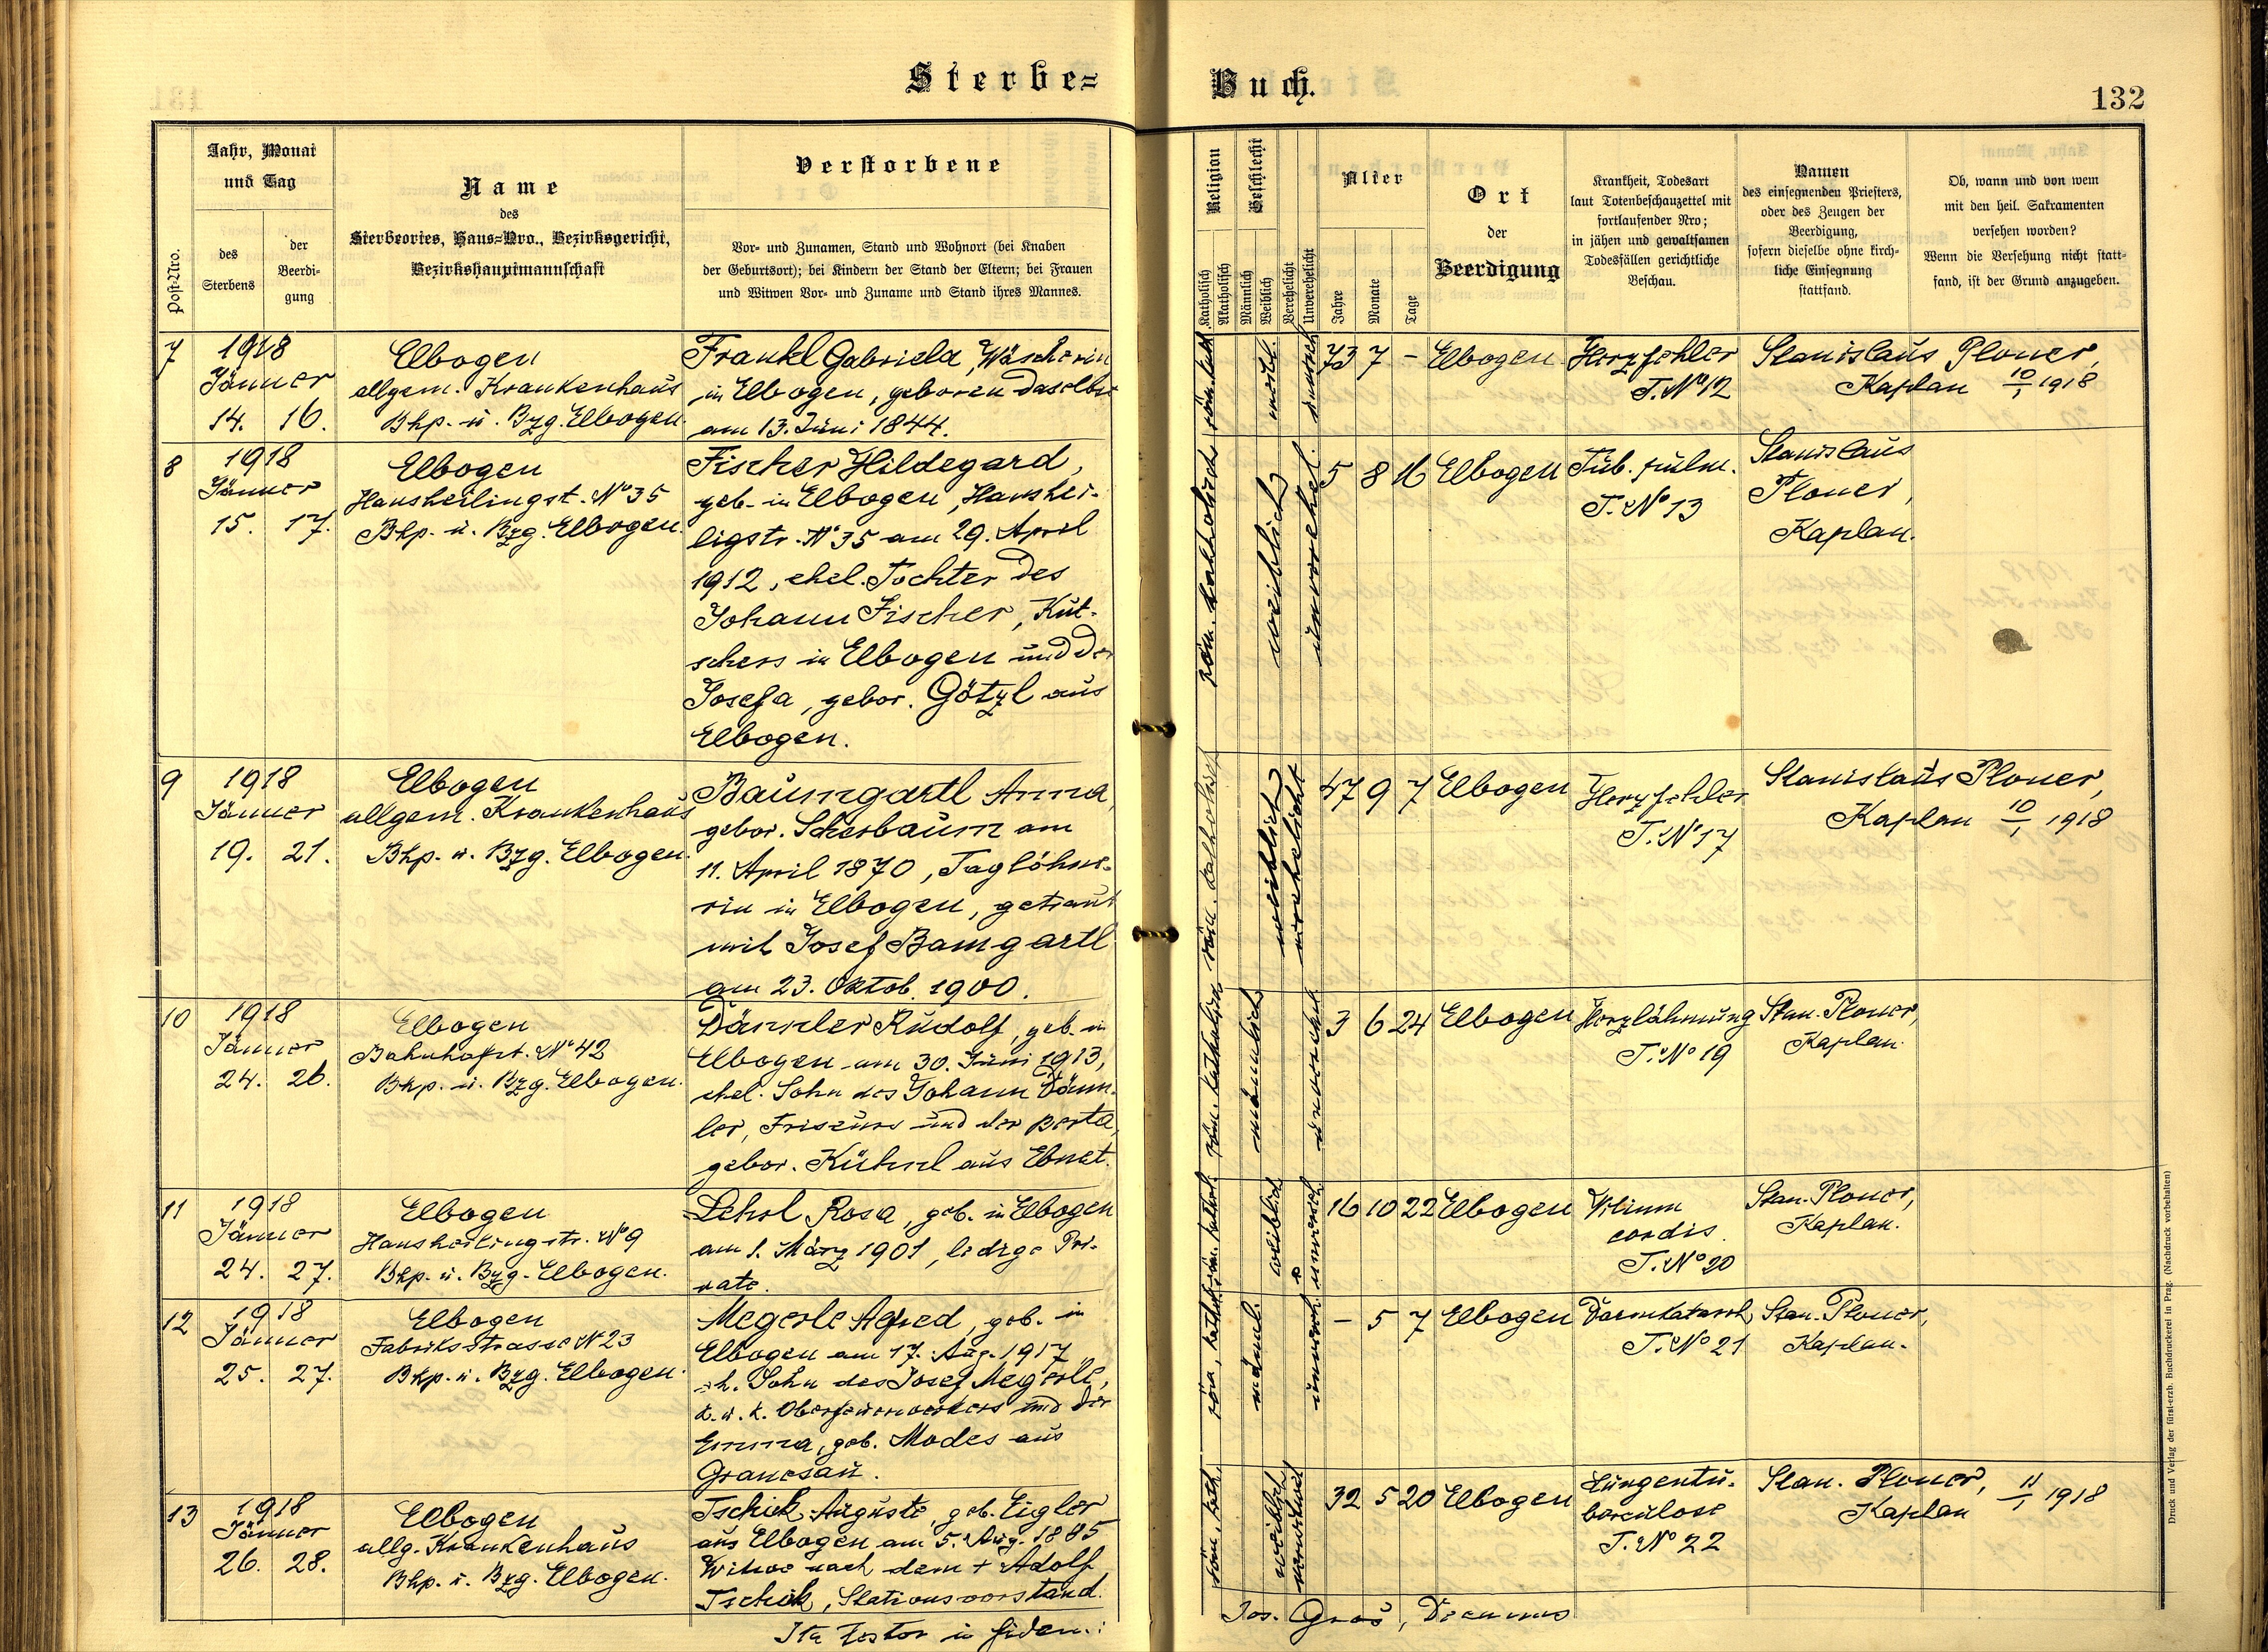 Sterbe-
Buch.
132
Post-Nro.
Jahr, Monat
und Tag
des
Sterbens
der
Beerdi-
gung
Name
des
Sterbeortes, Haus-Nro., Bezirksgericht,
Bezirkshauptmannschaft
Verstorbene
Vor- und Zunamen, Stand und Wohnort (bei Knaben
der Geburtsort); bei Kindern der Stand der Eltern; bei Frauen
und Witwen Vor- und Zuname und Stand ihres Mannes.
Religion
Katholisch
Akatholisch
Geschlecht
Männlich
Weiblich
Verehelicht
Unverehelicht
Alter
Jahre
Monate
Tage
Ort
der
Beerdigung
Krankheit, Todesart
laut Totenbeschauzettel mit
fortlaufender Nro;
in jähen und gewaltsamen
Todesfällen gerichtliche
Beschau.
Namen
des einsegnenden Priesters,
oder des Zeugen der
Beerdigung,
sofern dieselbe ohne kirch-
liche Einsegnung
stattfand.
Ob, wann und von wem
mit den heil. Sakramenten
versehen worden?
Wenn die Versehung nicht statt-
fand, ist der Grund anzugeben.
7
1918
Jänner
14. 16.
Elbogen
allgem. Krankenhaus
Bhp. u. Bzg. Elbogen.
Frankl Gabriela, Wäscherin
in Elbogen, geboren daselbst
am 13. Juni 1844.
röm. kath.
weibl.
unvereh.
73 7 -
Elbogen
Herzfehler
T. No 12
Stanislaus Ploner,
Kaplan 10/1 1918
8
1918
Jänner
15. 17.
Elbogen
Hansheilingst. No 35
Bhp. u. Bzg. Elbogen.
Fischer Hildegard,
geb. in Elbogen, Hanshei-
ligstr. No 35 am 29. April
1912, ehel. Tochter des
Johann Fischer, Kut-
schers in Elbogen und der
Josefa, gebor. Götzl aus
Elbogen.
röm. katholisch
weiblich
unverehel.
5 8 16
Elbogen
Tub. pulm.
T. No 13
Stanislaus
Ploner,
Kaplan.
9
1918
Jänner
19. 21.
Elbogen
allgem. Krankenhaus
Bhp. u. Bzg. Elbogen.
Baumgartl Anna,
gebor. Scherbaum am
11. April 1870, Taglöhne-
rin in Elbogen, getraut
mit Josef Bamgartl
am 23. Oktob. 1900.
röm. katholisch
weiblich
verehelicht
47 9 7
Elbogen
Herzfehler
T. No 17
Stanislaus Ploner,
Kaplan 10/1 1918
10
1918
Jänner
24. 26.
Elbogen
Bahnhofst. No 42
Bhp. u. Bzg. Elbogen.
Dämler Rudolf, geb. in
Elbogen am 30. Juni 1913,
ehel. Sohn des Johann Däm-
ler, Friseurs und der Berta,
gebor. Kühnl aus Ebnet.
röm. katholisch
männlich
unverehel.
3 6 24
Elbogen
Herzlähmung
T. No 19
Stan. Ploner,
Kaplan.
11
1918
Jänner
24. 27.
Elbogen
Hansheilingstr. No 9
Bhp. u. Bzg. Elbogen.
Lehrl Rosa, geb. in Elbogen
am 1. März 1901, ledige Pri-
vate.
röm. kathol.
weiblich
unvereh.
16 10 22
Elbogen
Vitium
cordis.
T. No 20
Stan. Ploner,
Kaplan.
12
1918
Jänner
25. 27.
Elbogen
Fabriksstrasse No 23
Bhp. u. Bzg. Elbogen.
Megerle Alfred, geb. in
Elbogen am 17. Aug. 1917,
eh. Sohn des Josef Megerle,
k. u. k. Oberfeuerwerkers und der
Emma, geb. Modes aus
Granesau.
röm. kathol.
männl.
unvereh.
- 5 7
Elbogen
Darmkatarrh
T. No 21
Stan. Ploner,
Kaplan.
13
1918
Jänner
26. 28.
Elbogen
allg. Krankenhaus
Bhp. u. Bzg. Elbogen.
Tschick Auguste, geb. Eigler
aus Elbogen am 5. Aug. 1885
Witwe nach dem + Adolf
Tschick, Stationsvorstand.
röm. kath.
weiblich
verwitwet
32 5 20
Elbogen
Lungentu-
berculose
T. No 22
Stan. Ploner,
Kaplan 11/1 1918
Ita testor in fidem:
Jos. Gras, Decanus
Druck und Verlag der fürst-erzb. Buchdruckerei in Prag. (Nachdruck vorbehalten)